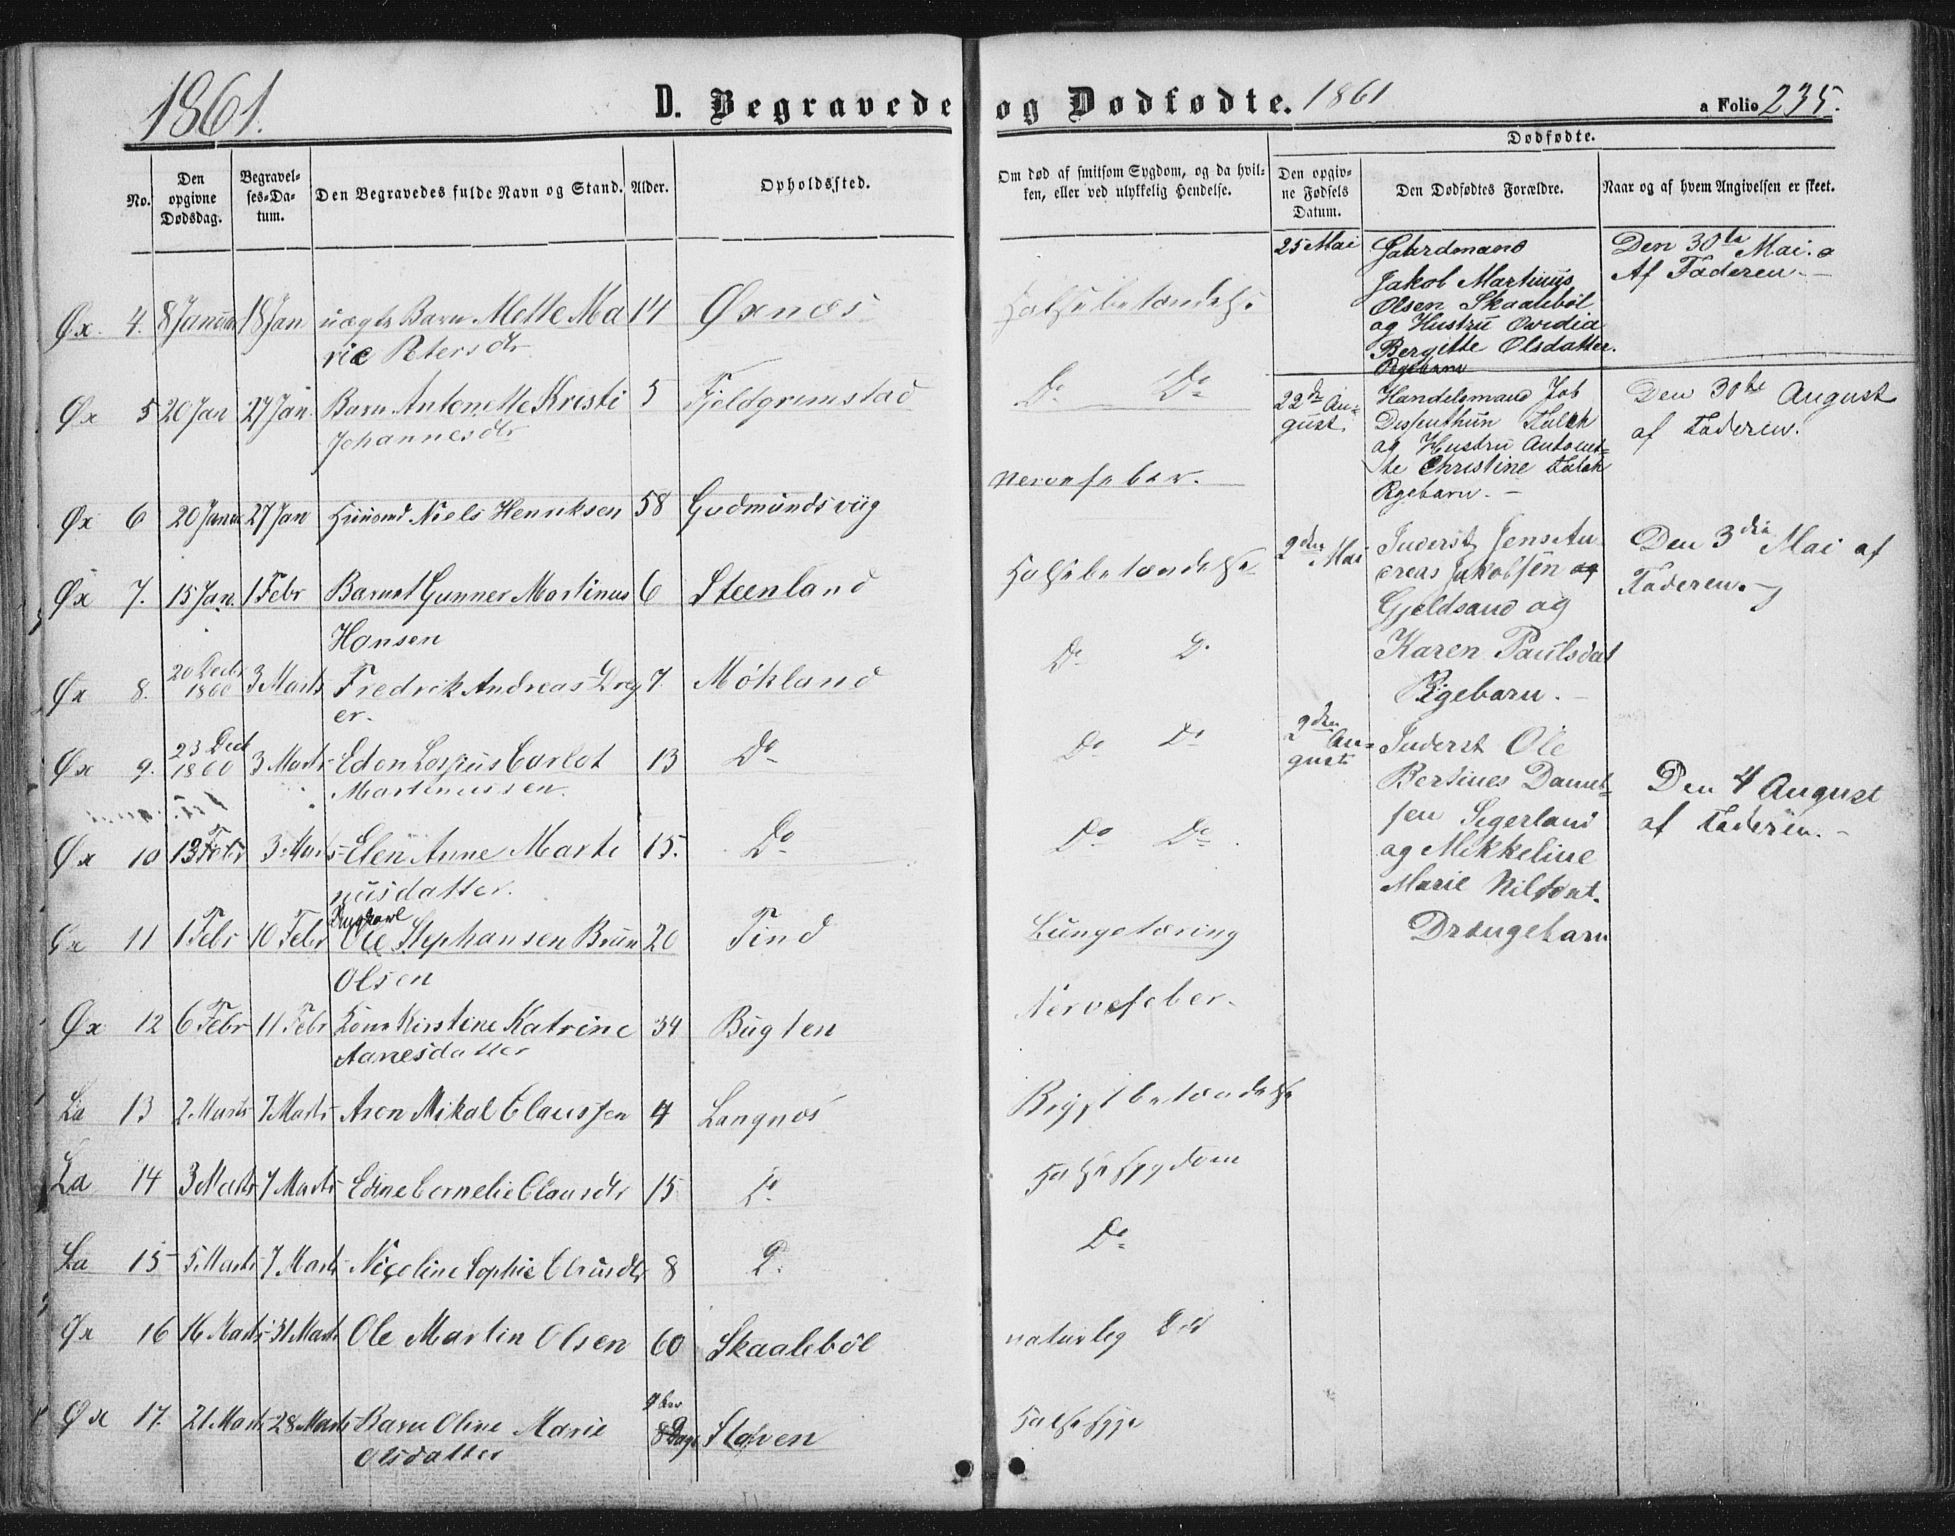 1861.
D. Begravede og Dødfødte. 1861
a Folio 235.
No.
Den opgivne Dødsdag.
Begravelses-Datum.
Den Begravedes fulde Navn og Stand.
Alder.
Opholdssted.
Om død af smitsom Sygdom, og da hvilken, eller ved ulykkelig Hendelse.
Dødfødte.
Den opgivne Fødsels Datum.
Den Dødfødtes Forældre.
Naar og af hvem Angivelsen er skeet.
Øx. 4. 8 Januar 18 Jan uægte Barn Mette Ma 14 Øxnæs Halsebetændelse
rie Petersdtr
Øx 5 20 Jan 27 Jan Barn Antonette Kristi 5 Fjeldgrimstad Do Do
Johannesdtr
Øx 6 20 Januar 27 Jan Huusmd Niels Henriksen 58 Gudmundsviig Nervefeber.
Øx 7. 15 Jan. 1 Febr Barnet Gunner Martinus 6 Steenland Halsebetændelse
Hansen
Øx 8. 20 Decbr 1860 3 Marts Fredrik Andreas Drey 7 Mökland Do Do
er.
Øx 9. 23 Dec 1860 3 Marts Edon Carlot 13 Do Do Do
Martinussen.
Øx 10 13 Febr 3 Marts Elen Anne Marti 15. Do Do Do
nusdatter.
Øx 11 1 Febr 10 Febr Ungkarl Ole Stephansen Bruun 20 Tind Lungetæring
Olsen
Øx 12 6 Febr 11 Febr Kone Kirstine Katrine 34 Bugten Nervefeber.
Aanesdatter
La 13 2 Marts 7 Marts Aron Mikal Claussen 4 Langnæs Brystbetændelse
La 14 3 Marts 7 Marts Edine Cornelie Clausdtr 15 Do Halsesygdom
La 15 5 Marts 7 Marts Nicoline Sophie Clausdtr 8 Do Do
Øx 16 16 Marts 31 Marts Ole Martin Olsen 60 Skaaleböl naturlig Död
Øx 17. 21 Marts 28 Marts Barn Oline Marie 8 Dage Støven Halsesyge
Olsdatter
25 Mai
Gaardmand
Jakob Martinus
Olsen Skaaleböl
og Hustru Ovedia
Bergitte Olsdatter.
Pigebarn
Den 30te Mai.
Af Faderen.
22de August.
Handelsmand Job
Falch
og Hustru Antonet-
te Christine Falch
Pigebarn.
Den 30te August
af Faderen.
2den Mai
Inderst Jens An
dreas Jakobsen og
Gjeldsand og
Karen Paulsdat
Pigebarn.
Den 3die Mai af
Faderen.
2den August
Inderst Ole
Bertines Daniel-
sen Segerland
og Mikkeline
Marie Nilsdat.
Drængebarn
Den 4 August
af Faderen.